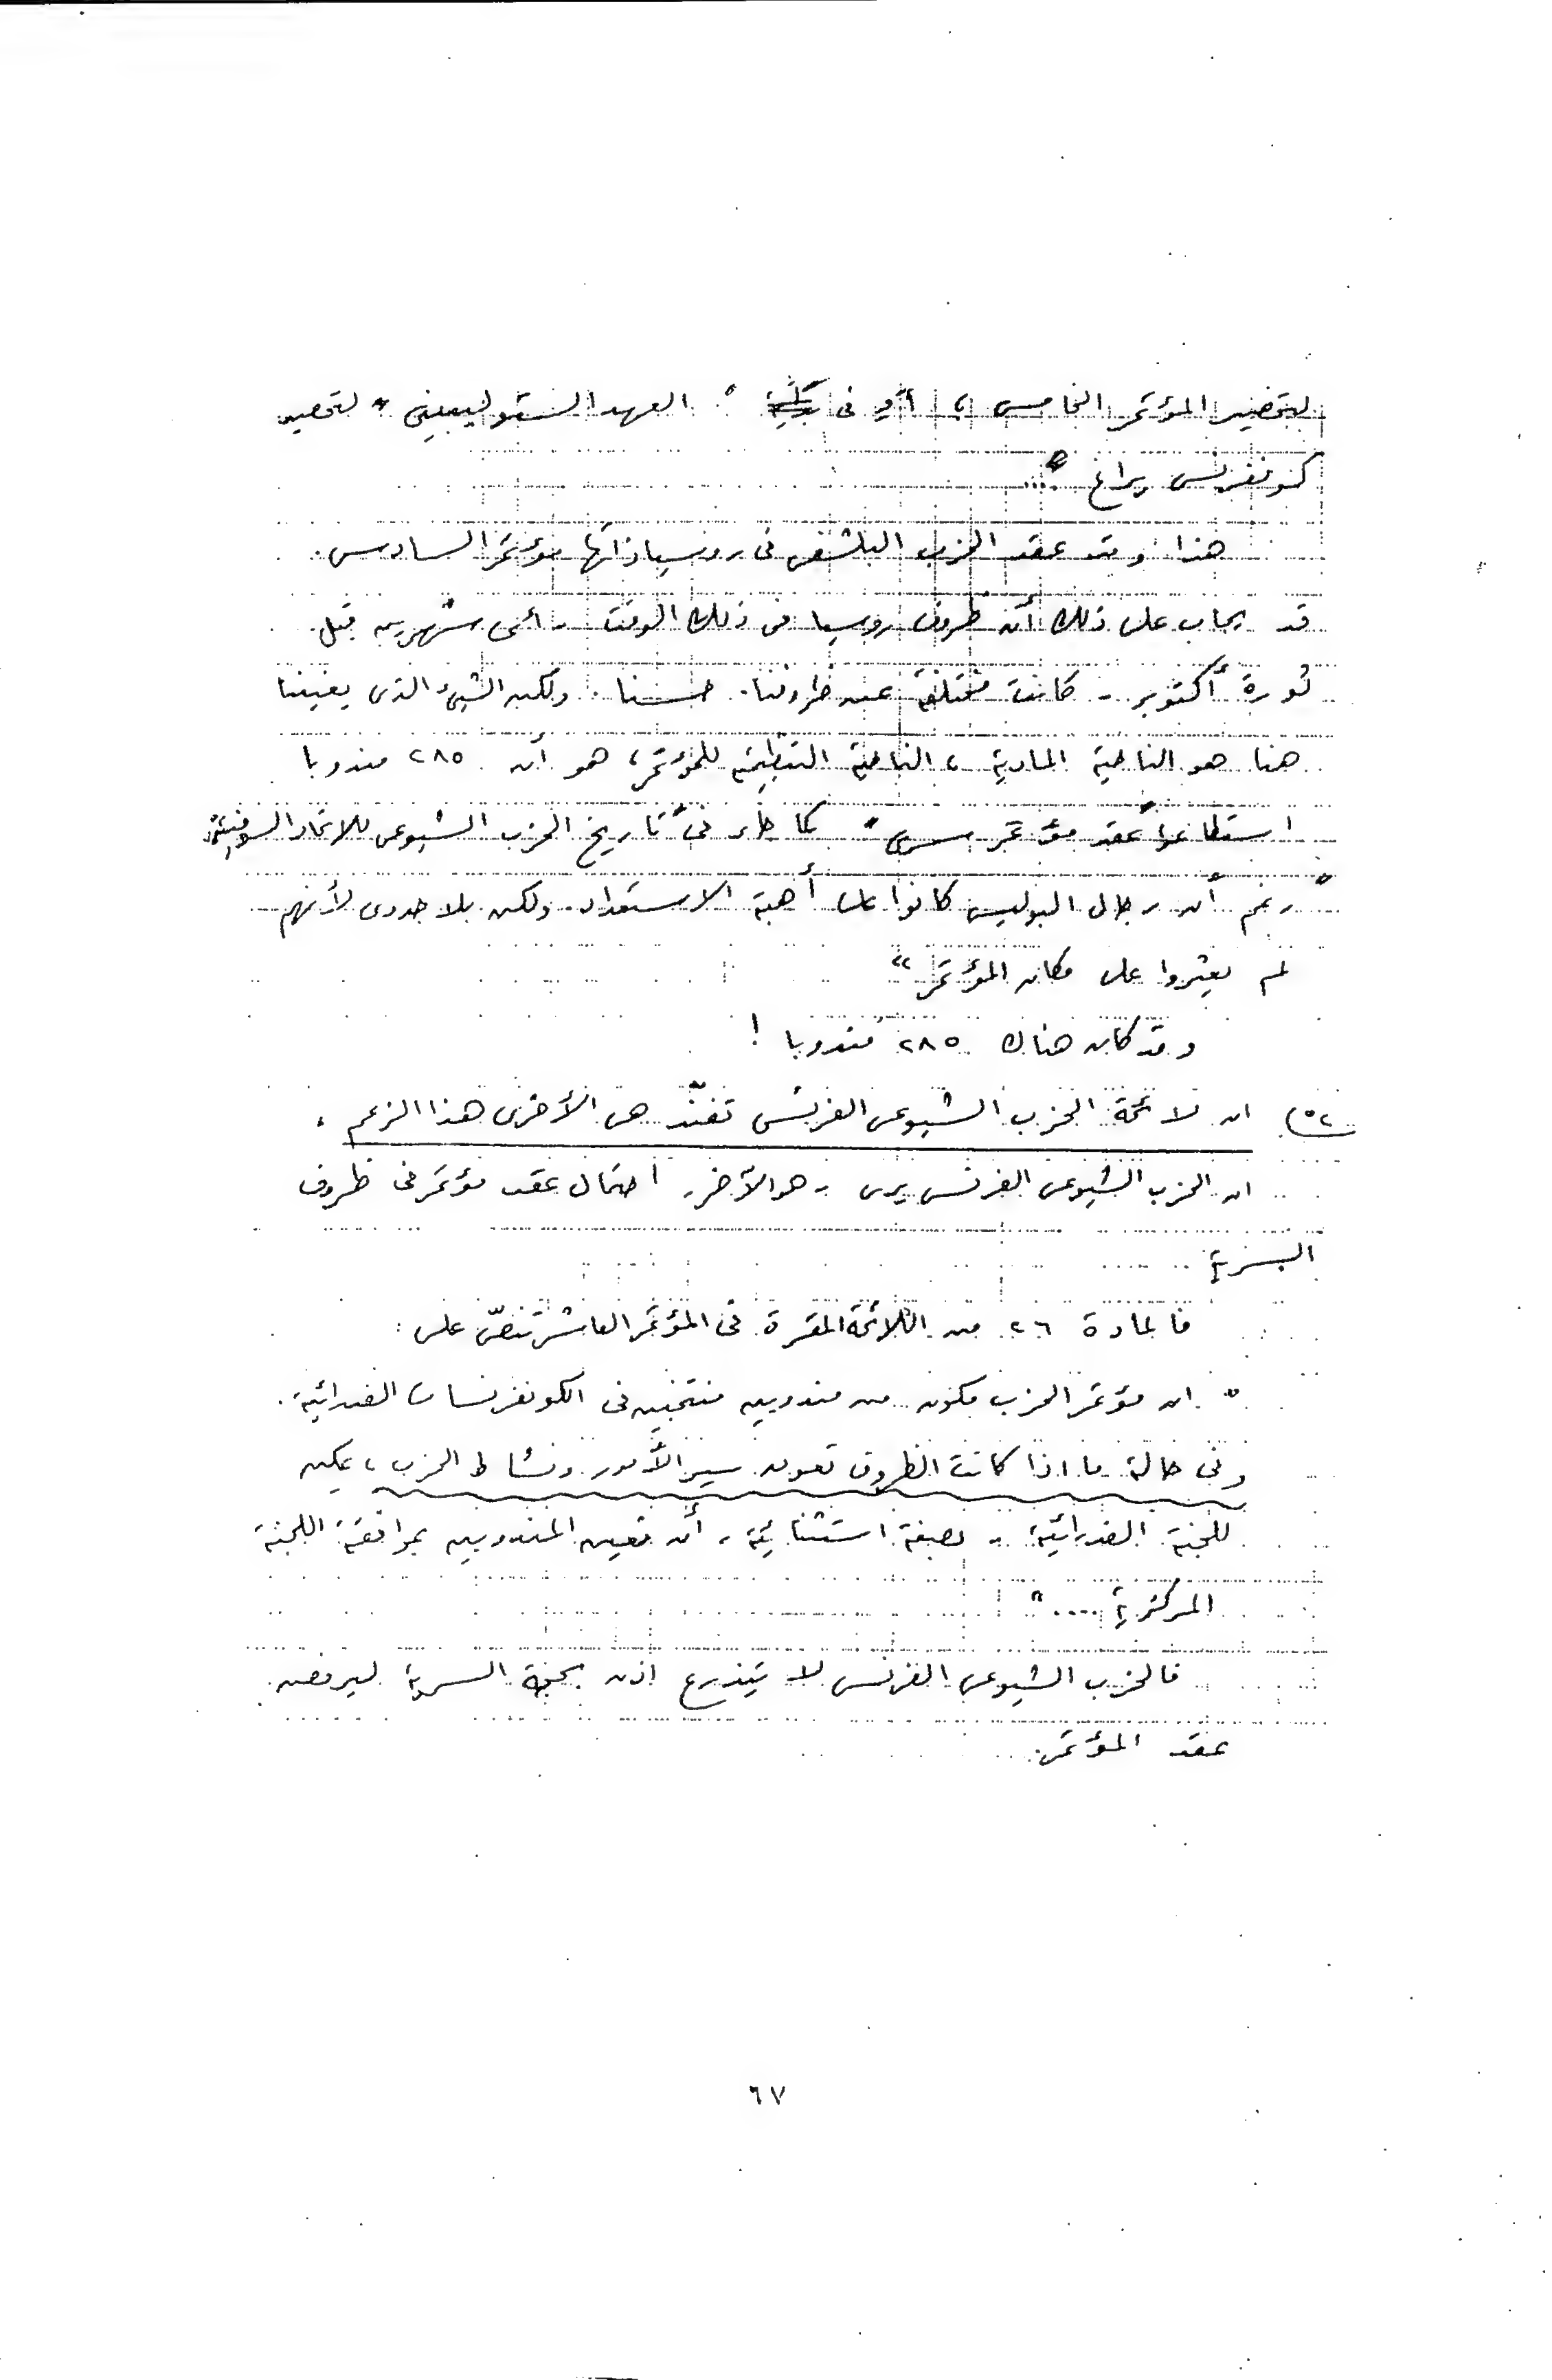 لتحضير المؤتمر الخامس ، أو فى " العهد الستوليبينى " لتحضير
كونفرنس براغ " ...
هذا وقد عقد الحزب البلشفى فى روسيا ذاتها مؤتمر السادس.
قد يجاب على ذلك أن ظروف روسيا فى ذلك الوقت - أى شهرين قبل
ثورة أكتوبر - كانت مختلفة عن ظروفنا. حسنا. ولكن الشئ الذى يعنينا
هنا هو الناحية المادية ، الناحية التنظيمية للمؤتمر، هو أن ٢٨٥ مندوبا
استطاعوا "عقد مؤتمر سرى" كما جاء فى "تاريخ الحزب الشيوعى للاتحاد السوفيتى"
"رغم أن رجال البوليس كانوا على أهبة الاستعداد. ولكن بلا جدوى لأنهم
لم يعثروا على مكان المؤتمر"
وقد كان هناك ٢٨٥ مندوبا !
٥٢) ان لائحة الحزب الشيوعى الفرنسى تفنّد هى الأخرى هذا الزعم .
ان الحزب الشيوعى الفرنسى يرى - هو الآخر - احتمال عقد مؤتمر فى ظروف
السرية .
فالمادة ٢٦ من اللائحة المقررة فى المؤتمر العاشر تنصّ على :
" ان مؤتمر الحزب مكون من مندوبين منتخبين فى الكونفرنسات الفدرائية .
وفى حالة ما اذا كانت الظروف تعوق سير الأمور ونشاط الحزب ، يمكن
للجنة الفدرائية - بصفة استثنائية - أن تعين المندوبين بموافقة اللجنة
المركزية .... "
فالحزب الشيوعى الفرنسى لا يتذرع اذن بحجة السرية ليرفض
عقد المؤتمر.
٦٧